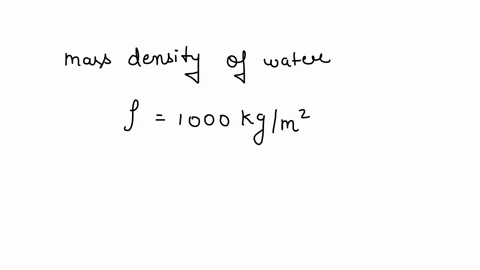 mass density of water
ρ = 1000 kg/m²